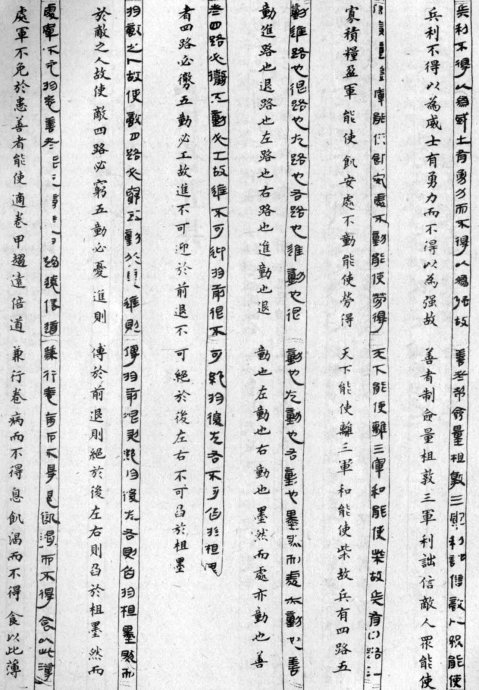 兵利不得以為威士有勇力而不得以為强故善者制僉量柤敦三軍利詘信敵人眾能使
兵利不得以為威士有勇力而不得以為强故善者制僉量柤敦三軍利詘信敵人眾能使
軍能使飢安處不動能使勞得天下能使離三軍和能使柴故兵有四路五
寡積糧盈軍能使飢安處不動能使勞得天下能使離三軍和能使柴故兵有四路五
動進路也退路也左路也右路也進動也退動也左動也右動也墨然而處亦動也善
動進路也退路也左路也右路也進動也退動也左動也右動也墨然而處亦動也善
者四路必徹五動必工故進不可迎於前退不可絕於後左右不可臽於柤墨
者四路必徹五動必工故進不可迎於前退不可絕於後左右不可臽於柤墨
於敵之人故使敵四路必窮五動必進則傅於前退則絕於後左右則臽於柤墨然而
於敵之人故使敵四路必窮五動必憂進則傅於前退則絕於後左右則臽於柤墨然而
處軍不免於患善者趨遠倍道兼行卷病而不得息飢渴而不得食以此薄
處軍不免於患善者能使適卷甲趨遠倍道兼行卷病而不得息飢渴而不得食以此薄